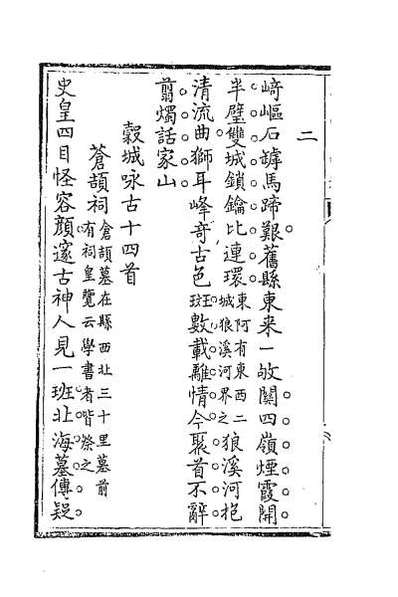 二
﨑嶇石罅馬蹄艱舊縣東来一攷關四嶺煙霞開
半壁雙城鎖鑰比連環東阿有東西二城狼溪河界之狼溪河抱
清流曲獅耳峰奇古色班數載離情今聚首不辭
翦燭話家山
穀城咏古十四首
蒼頡祠倉頡墓在縣西北三十里墓前有祠皇覽云學書者皆祭之
史皇四目怪容顏邃古神人見一班北海墓傳疑